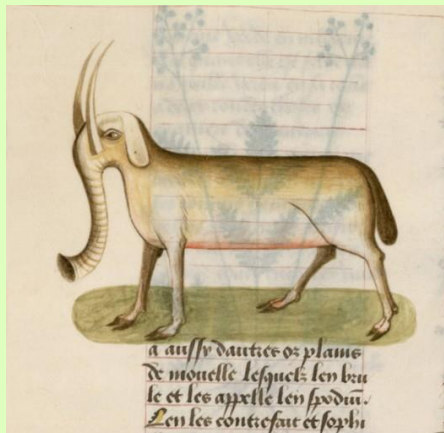 a aussy dautres os plains
de mouelle lesquelz len bru
le et les appelle len spodiu͂.
Len les contrefait et sophi